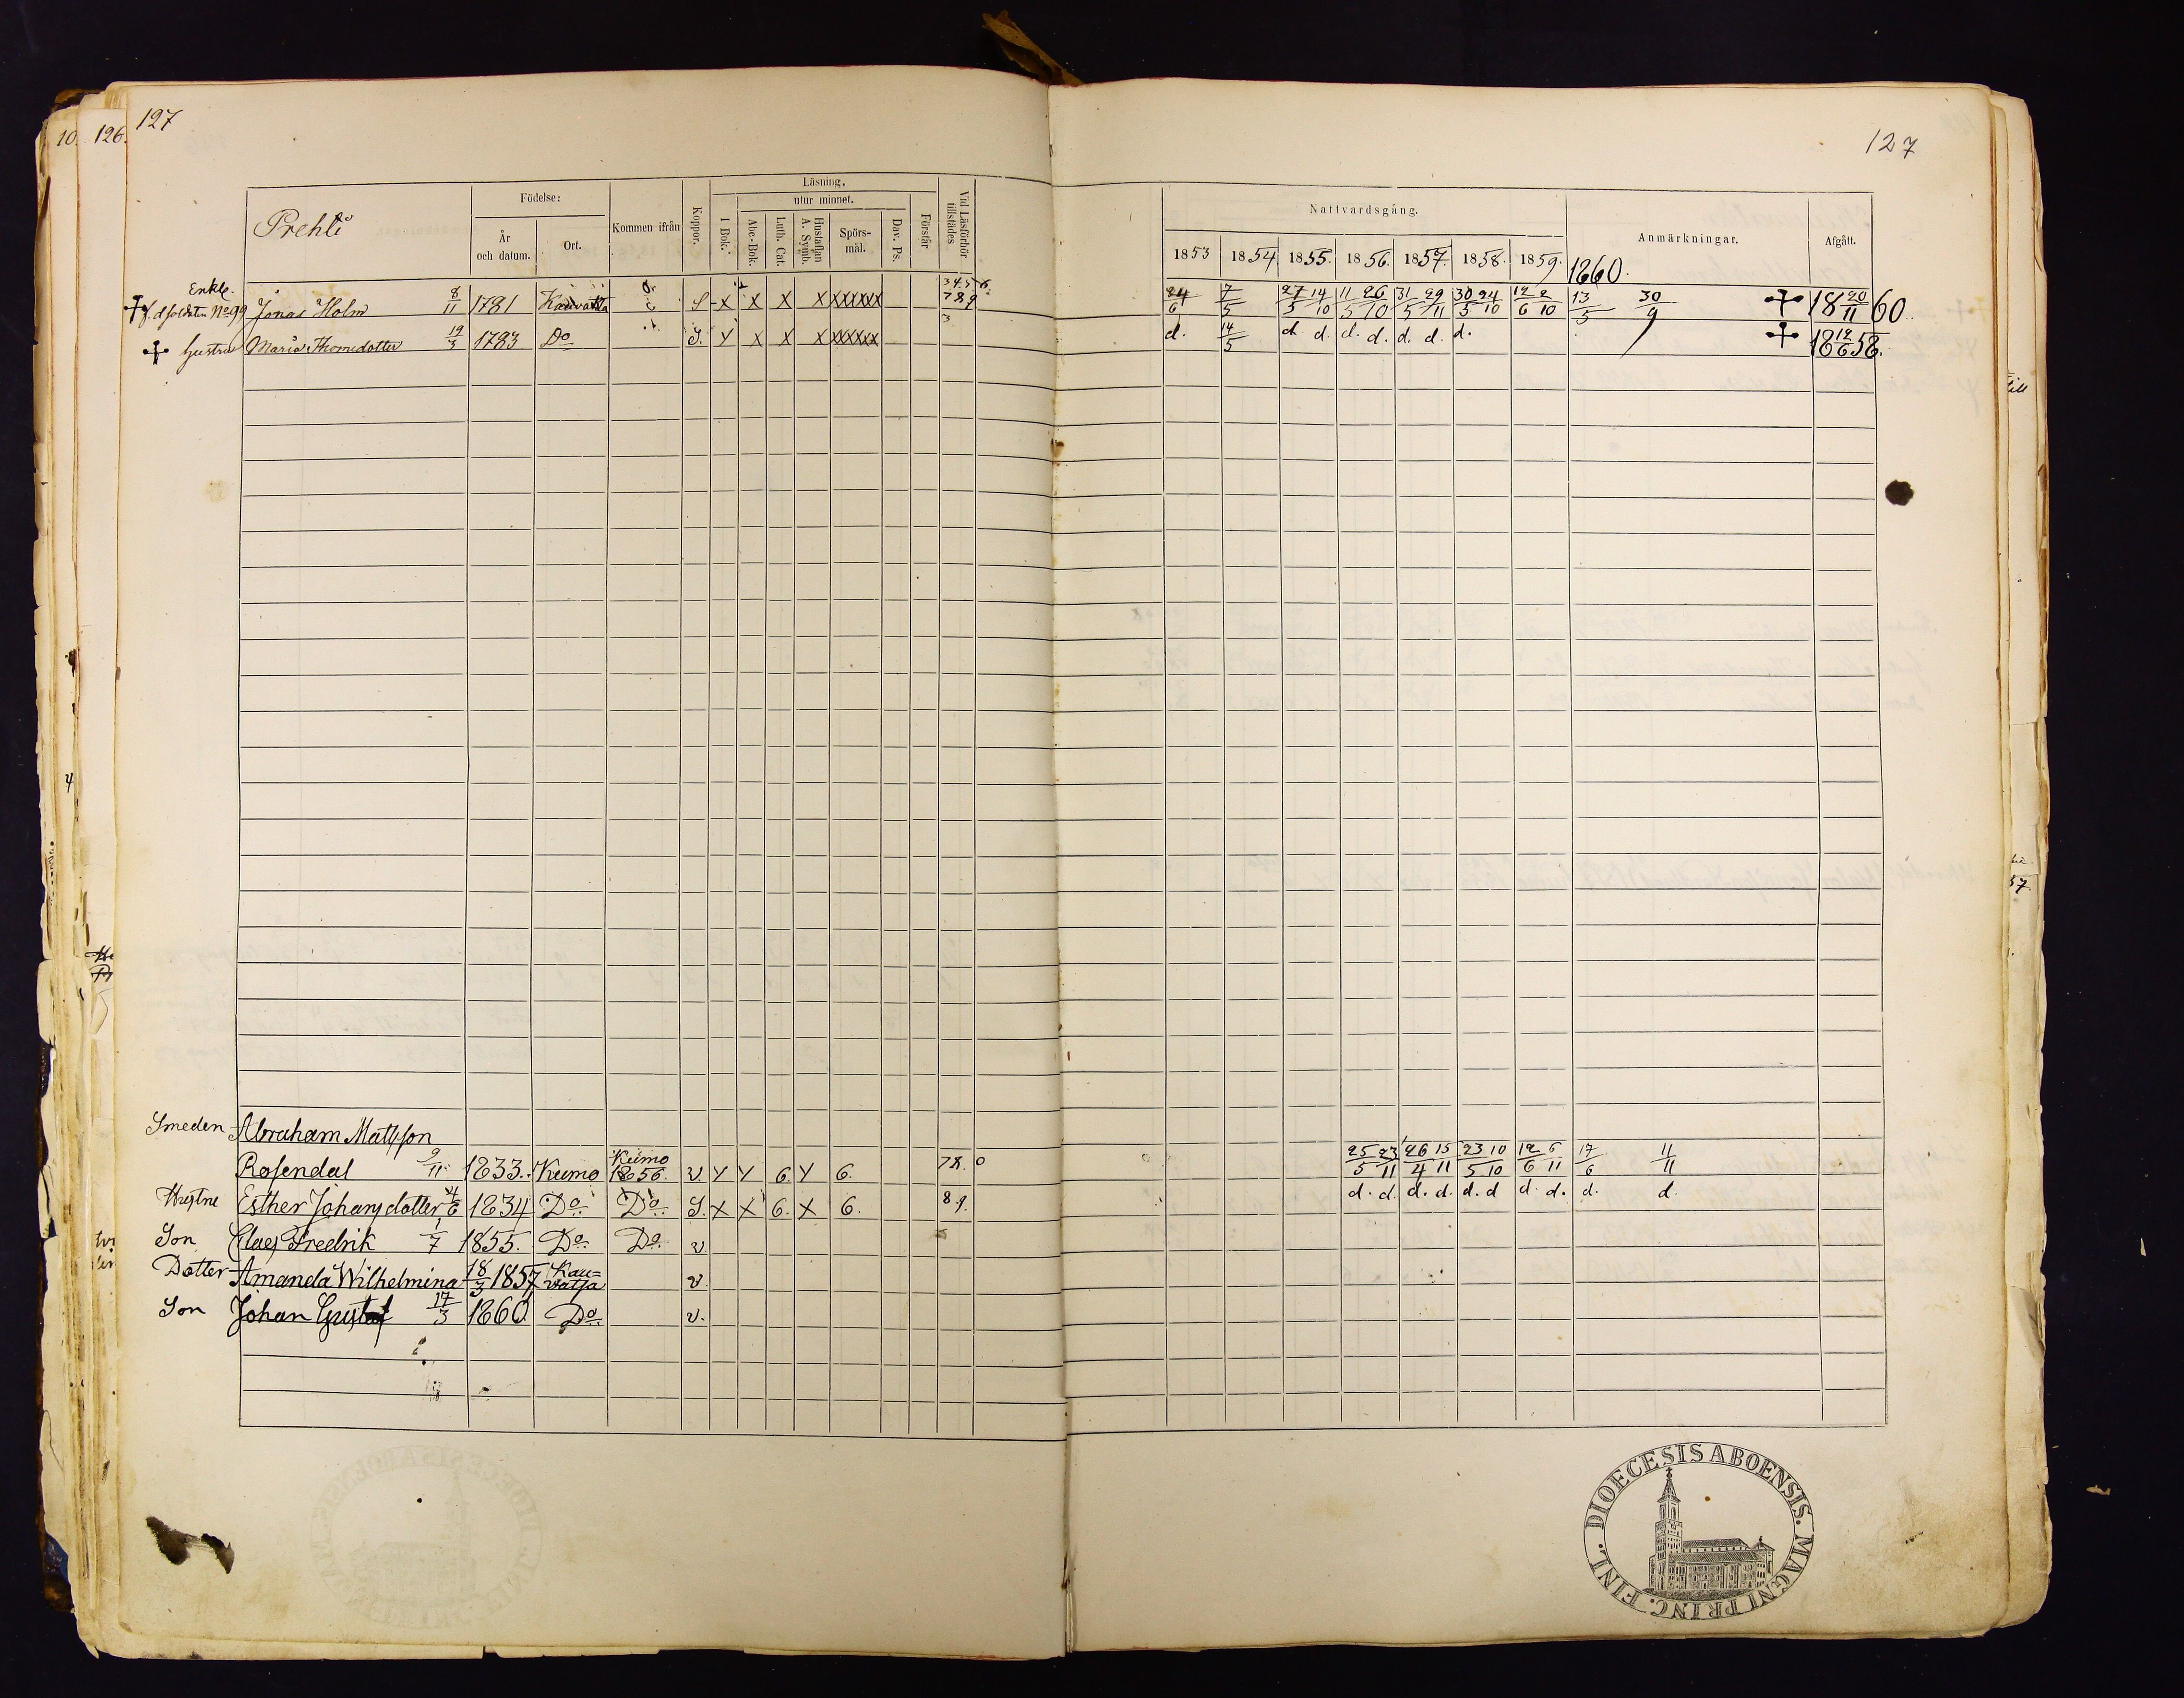 127
127
10.
126.
Prehli
Födelse:
År och datum.
Ort.
Kommen ifrån
Koppor.
Läsning,
utur minnet.
I Bok.
Abc-Bok.
Luth. Cat.
Hustaflan A. Symb.
Spörsmål.
Dav. Ps.
Förstår
Vid Läsförhör tillstädes
Nattvardsgång.
1853 1854 1855. 1856. 1857. 1858. 1859. 1860.
Anmärkningar.
Afgått.
Enkl.
f.d. soldaten No 99 Jonas Holm 8/11 1781 Kauvatsa S x x x x xxxxxx 3 4 5 6. 7 8 9 24/6 7/5 27/5 14/10 11/5 26/10 31/5 29/11 30/5 24/10 12/6 2/10 13/5 30/9 18 20/11 60.
hustru Maria Thomedotter 19/3 1783 Do S. x x x x xxxxxx 3 d. 14/5 d. d. d. d. d. d. d. 18 12/6 58.
Smeden Abraham Matsson
Rosendal 9/11 1833. Kumo Kumo 1856. v. y y 6. y 6. 7 8. 25/5 23/11 26/4 15/11 23/5 10/10 12/6 6/11 17/6 11/11
Hustru Esther Johansdotter 4/6 1834 Do Do S. x x 6. x 6. 8 9. d. d. d. d. d. d d. d. d. d.
Son Claes Fredrik 1/7 1855. Do Do v.
Dotter Amanda Wilhelmina 18/3 1857 Kauvatsa v.
Son Johan Gustaf 17/3 1860 Do v.
DIOECESIS ABOENSIS. MAGNI PRINC. FINL.